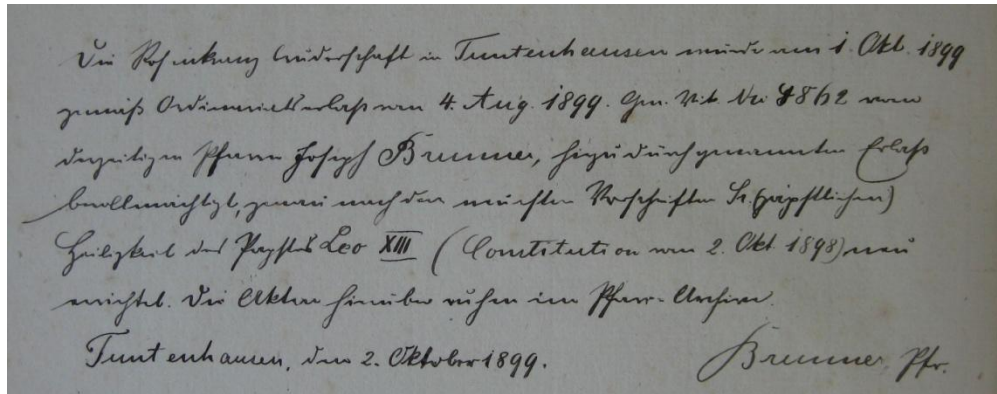 Die Rosenkranz bruderschaft in Tuntenhausen wurde am 1. Okt. 1899
gemäß Ordinariatserlaß vom 4. Aug. 1899. Gen. Vik. Nr. 8862 vom
derzeitigen Pfarrer Joseph Brunner, hiezu durch genannten Erlaß
bevollmächtigt, genau nach den neuesten Vorschriften Sr. (päpstlichen)
Heiligkeit des Papstes Leo XIII (Constitution vom 2. Okt 1898) neu
errichtet. Die Akten hierüber ruhen im Pfarr-Archive.
Tuntenhausen, den 2. Oktober 1899.
Brunner, Pfr.